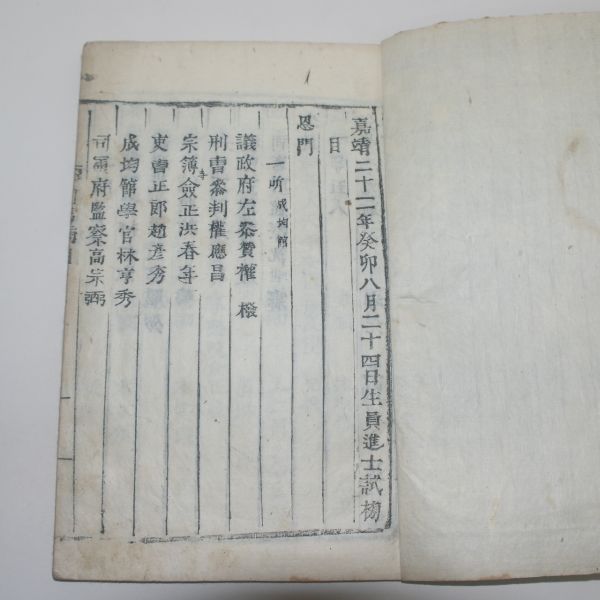 嘉靖二十二年癸卯八月二十四日生員進士試榜
目
恩門
一所成均館
議政府左參贊權橃
刑曹參判權應昌
宗簿寺僉正洪春年
吏曹正郎趙彥秀
成均館學官林亨秀
司憲府監察高宗弼